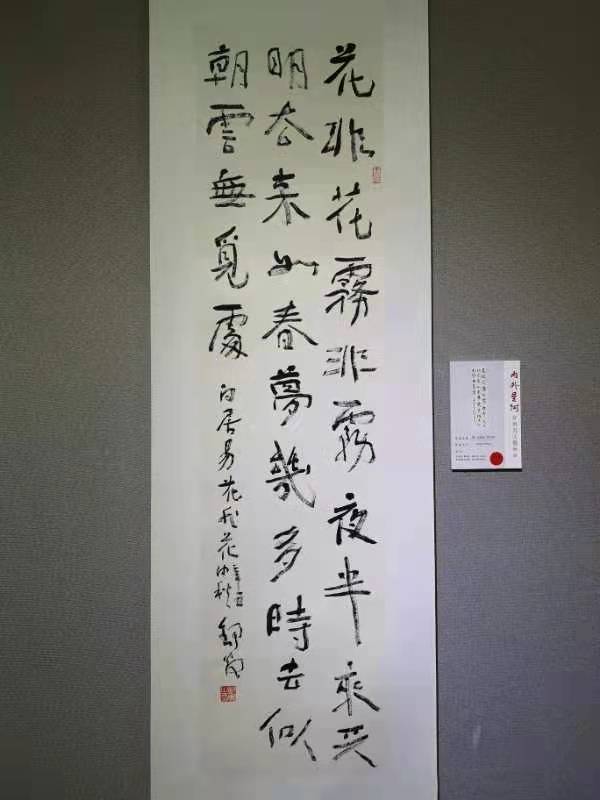 花非花霧非霧夜半來天
明去來如春夢幾多時去似
朝雲無覓處 白居易花非花 辛丑仲秋